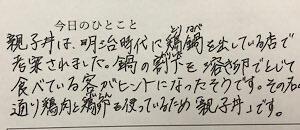 今日のひとこと
親子丼は、明治時代に鶏鍋を出している店で
とりなべ
考案されました。鍋の割下を溶き卵でとじて
食べている客がヒントになったそうです。その名の
通り鶏肉と鶏卵を使っているため「親子丼」です。